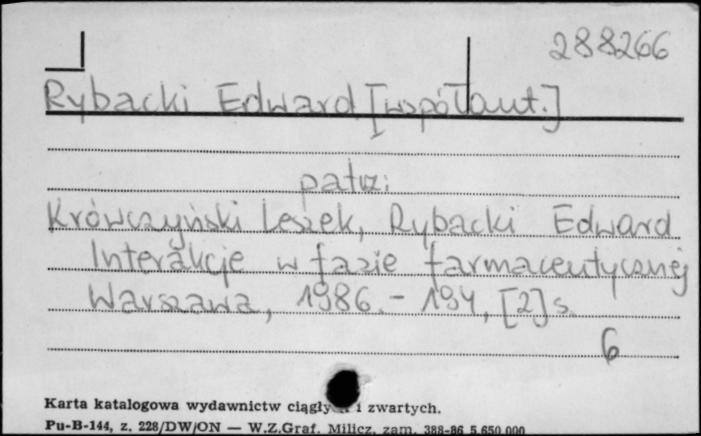 288266
Rybacki Edward [współaut.]
patrz:
Krówczyński Leszek, Rybacki Edward
Interakcje w fazie farmaceutycznej
Warszawa, 1986. - 194, [2] s.
6
Karta katalogowa wydawnictw ciągłych i zwartych.
Pu-B-144, z. 228/DW/ON — W.Z.Graf. Milicz, zam. 388-86 5.650.000